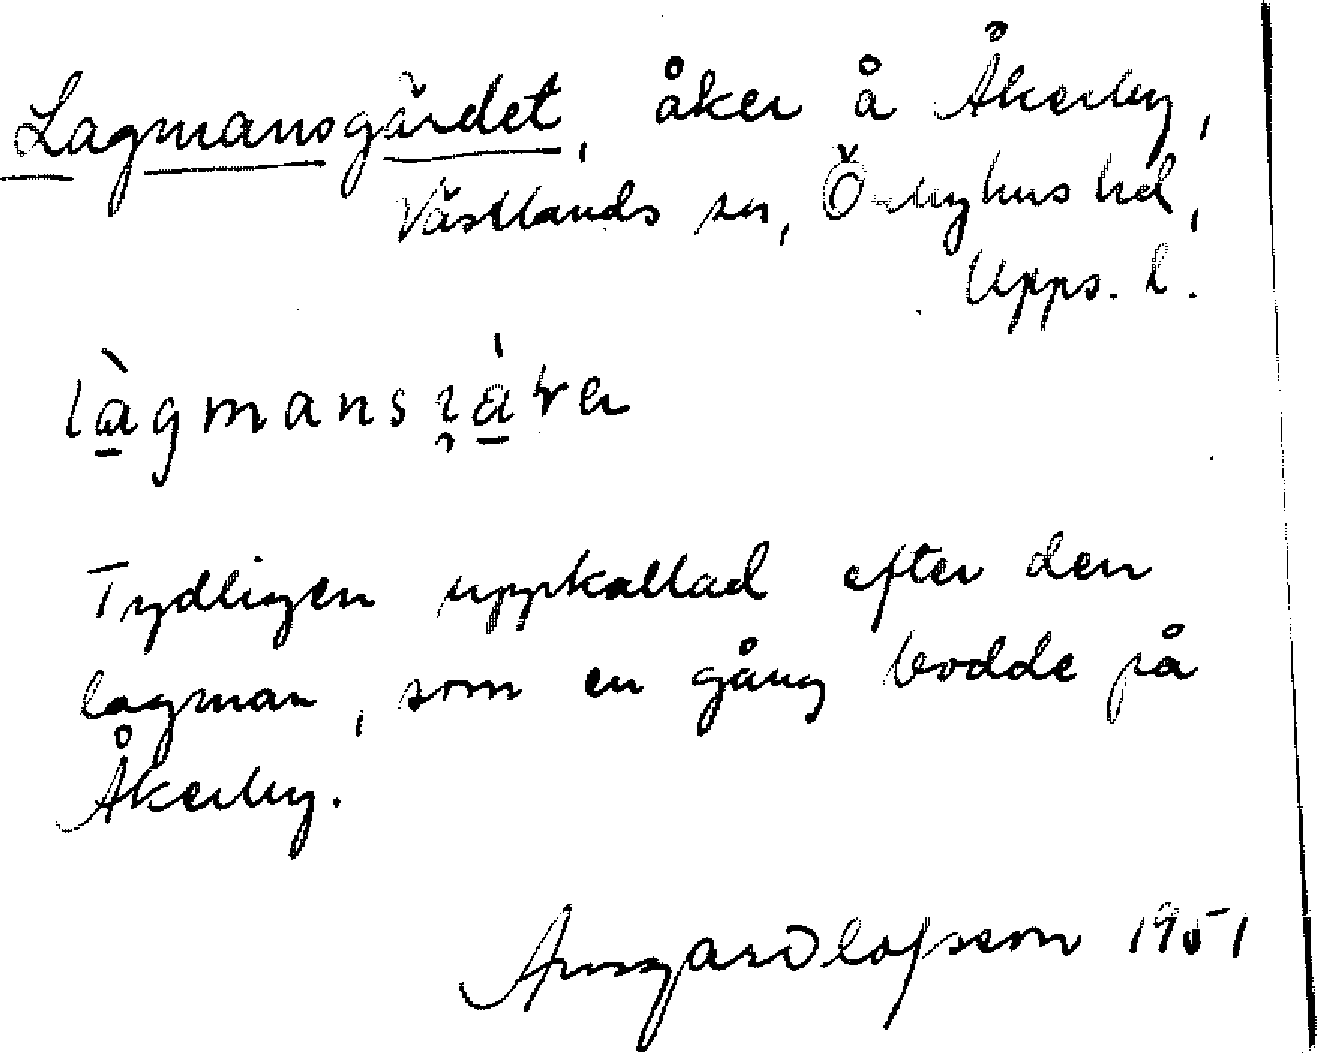 Lagmansgärdet, åker å Åkerby,
Västlands sn, Örbyhus hd,
Upps. l.
Tydligen uppkallad efter den
lagman, som en gång bodde på
Åkerby.
Olofsson 1951